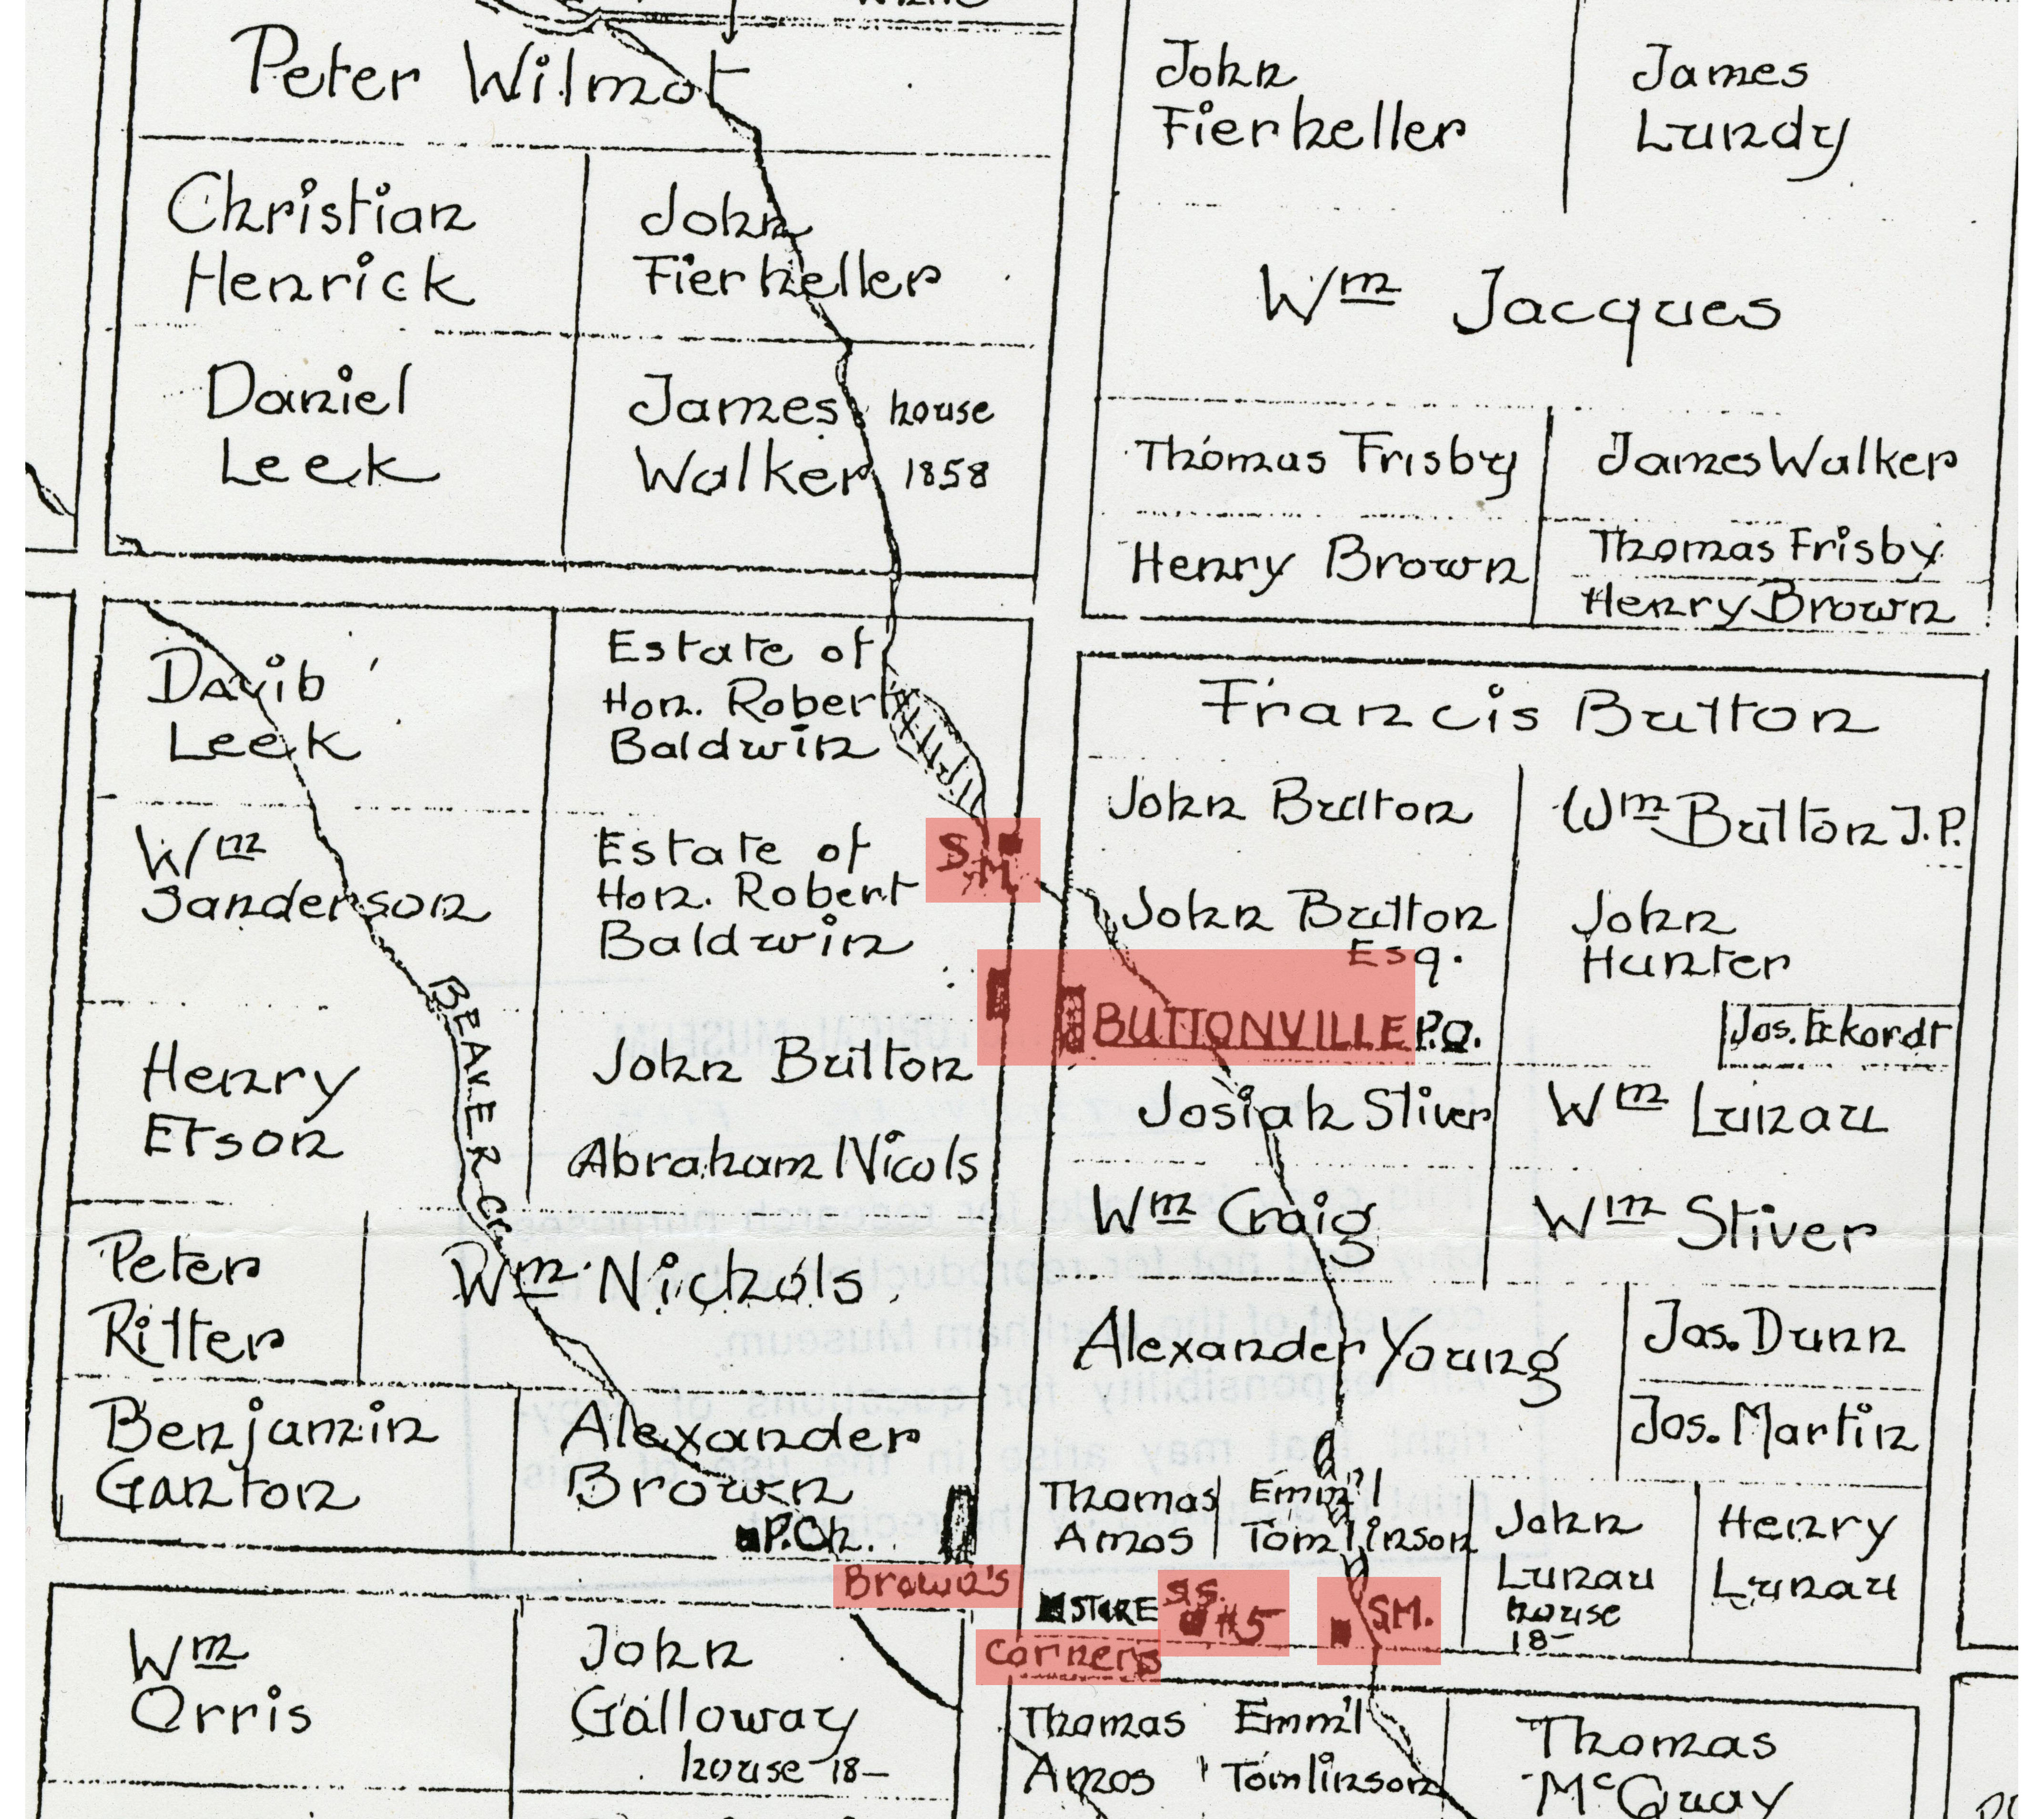 Peter Wilmot
Christian
Henrick
John
Fierheller
Daniel
Leek
James
Walker
house
1858
John
Fierheller
James
Lundy
Wm Jacques
Thomas Frisby
James Walker
Henry Brown
Thomas Frisby
Henry Brown
David
Leek
Estate of
Hon. Robert
Baldwin
Wm
Sanderson
Estate of
Hon. Robert
Baldwin
S.M.
Henry
Etson
BEAVER CR.
John Button
Abraham Nicols
Peter
Ritter
Wm Nichols
Benjamin
Ganton
Alexander
Brown
P.Ch.
Brown's
Corners
Francis Button
John Button
Wm Button J.P.
John Button
Esq.
John
Hunter
BUTTONVILLE P.O.
Jos. Eckardt
Josiah Stiver
Wm Lunau
Wm Craig
Wm Stiver
Alexander Young
Jas. Dunn
Jos. Martin
Thomas
Amos
Emm'l
Tomlinson
John
Lunau
house
18-
Henry
Lunau
STORE
S.S.
#5
SM.
Wm
Orris
John
Galloway
house 18-
Thomas
Amos
Emm'l
Tomlinson
Thomas
McQuay